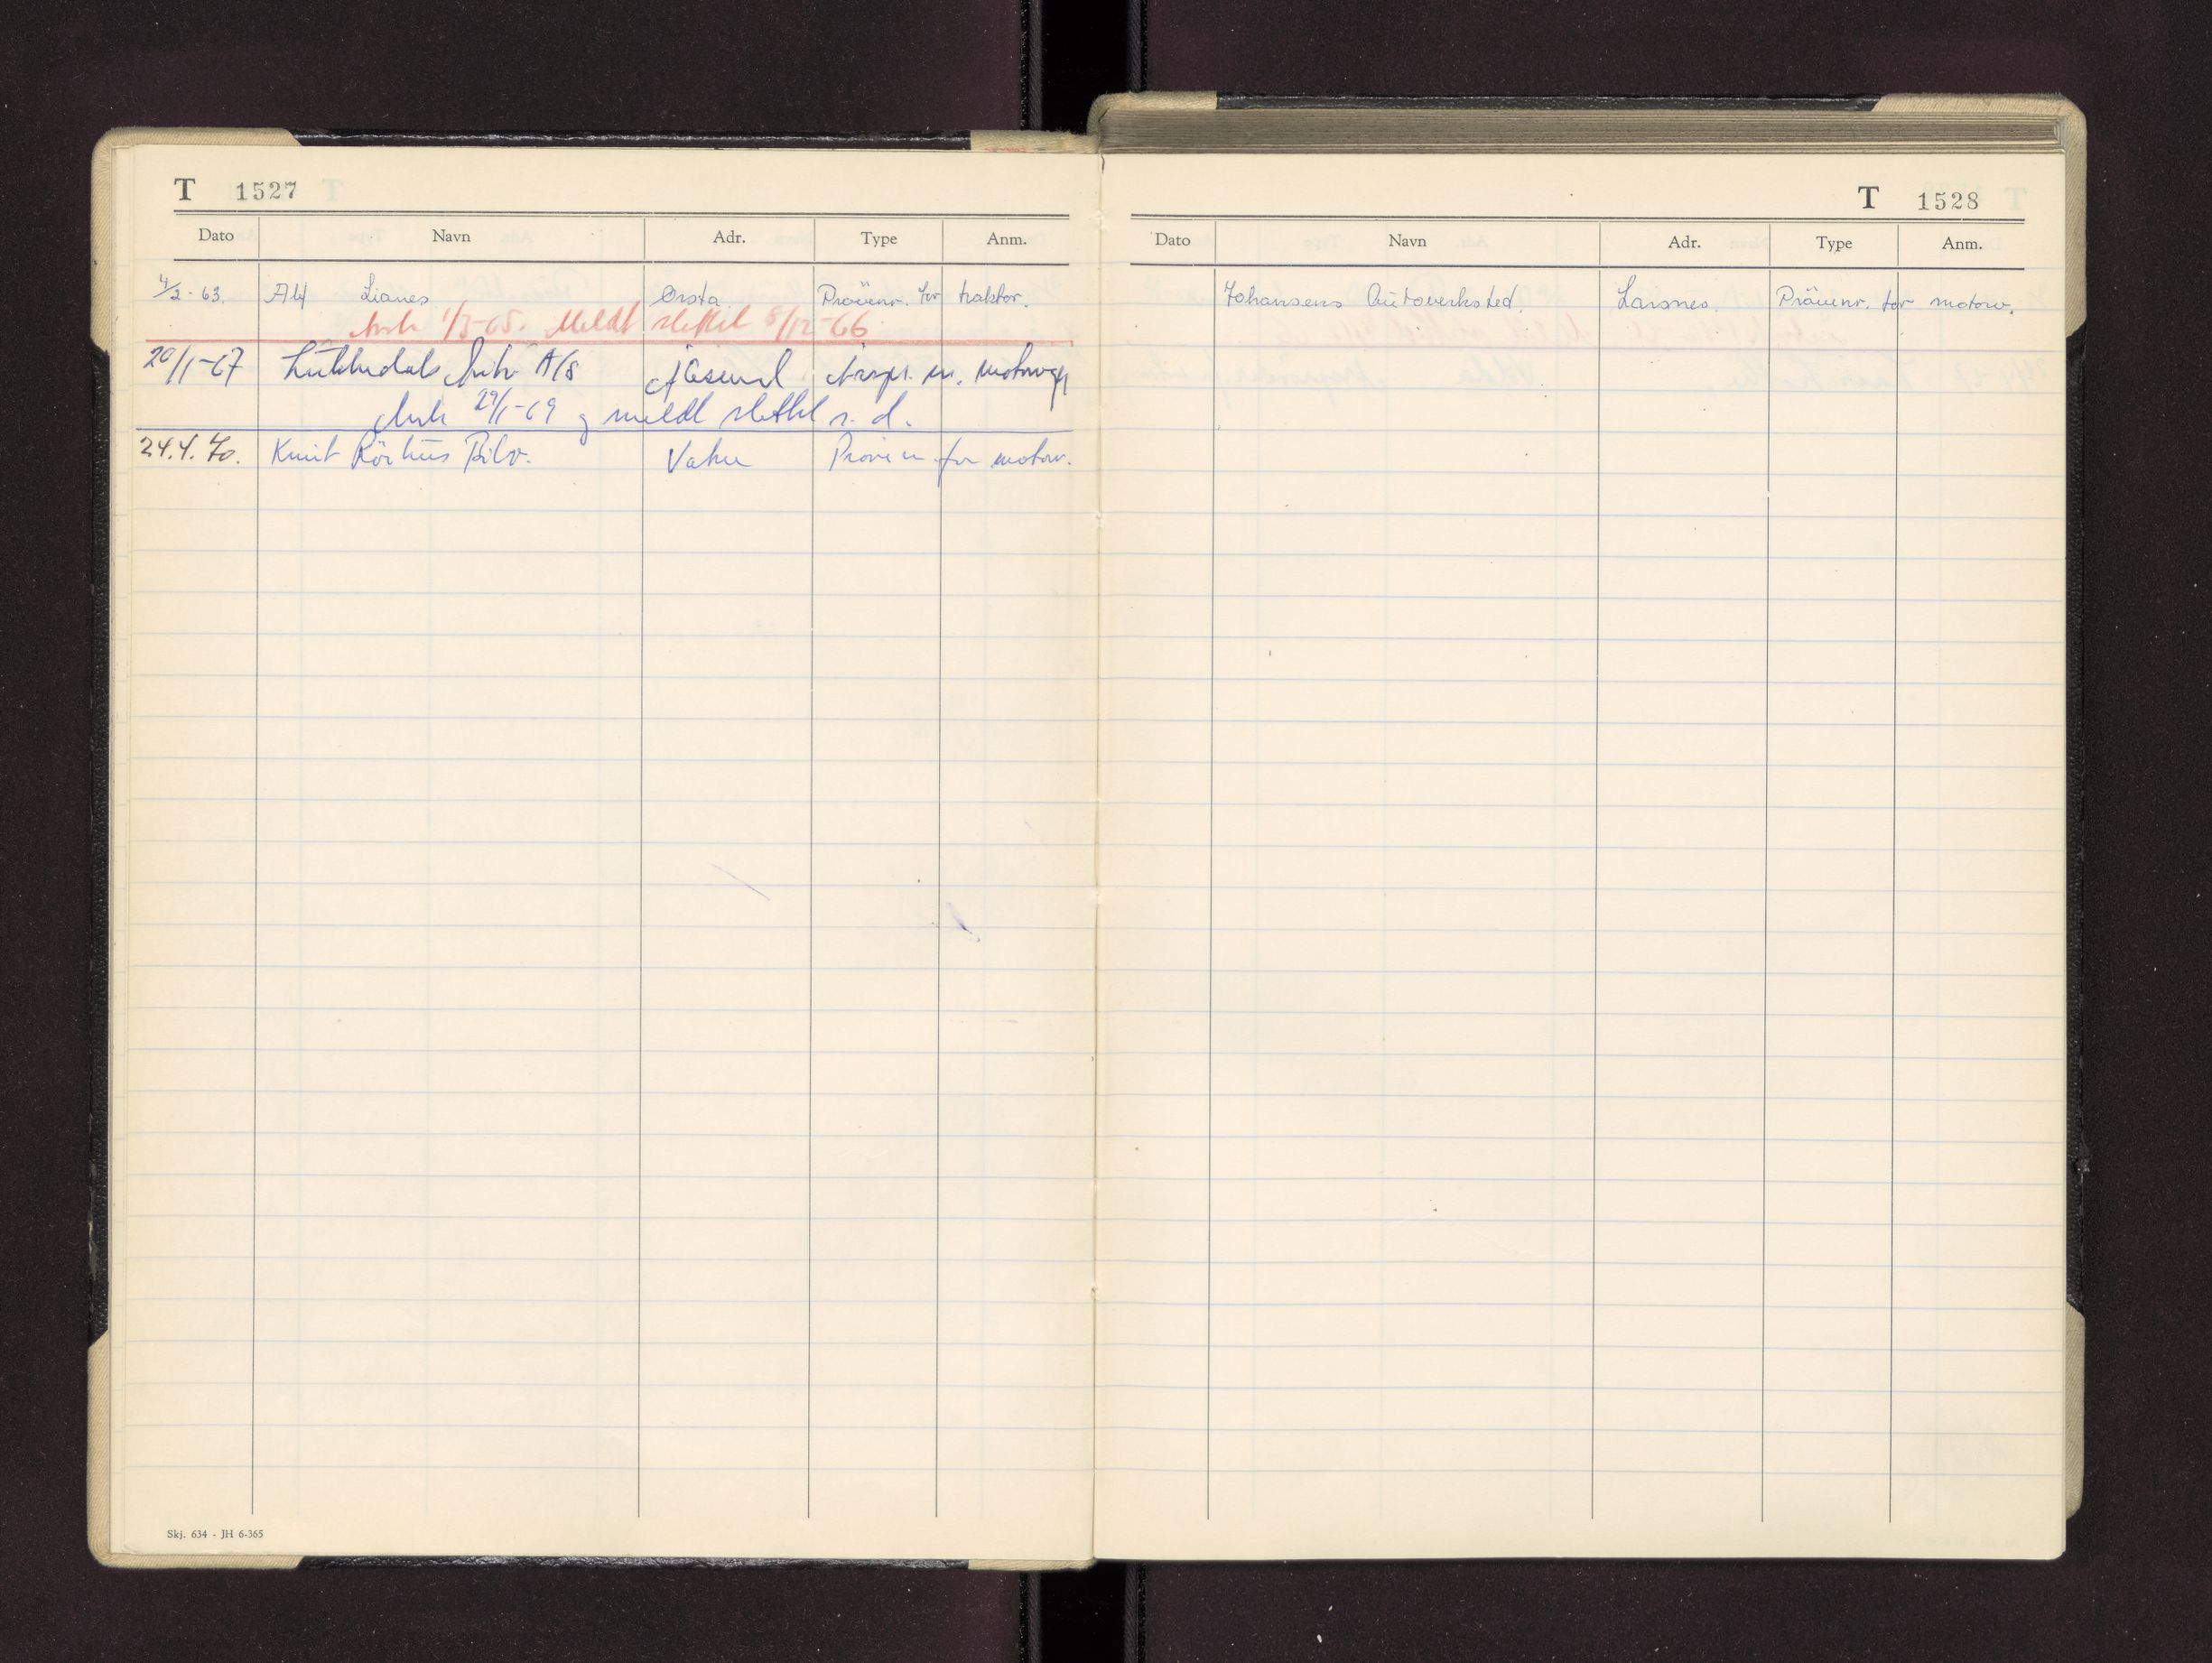 T 1527
Dato Navn Adr. Type Anm.
4/2-63. Alf Lianes Ørsta. Prövenr. for traktor.
Avsk 1/3-65. Meldt slettet 8/12-66
20/1-67 A/S nr. motorvgn
Avsk 29/1-69 og meldt slettet s. d.
24.4.70. Knut Bilv. Vatne Prøve nr for motorv.
Skj. 634 - JH 6-365
T 1528
Dato Navn Adr. Type Anm.
Johansens Autoverksted. Larsnes. Prövenr. for motorv.